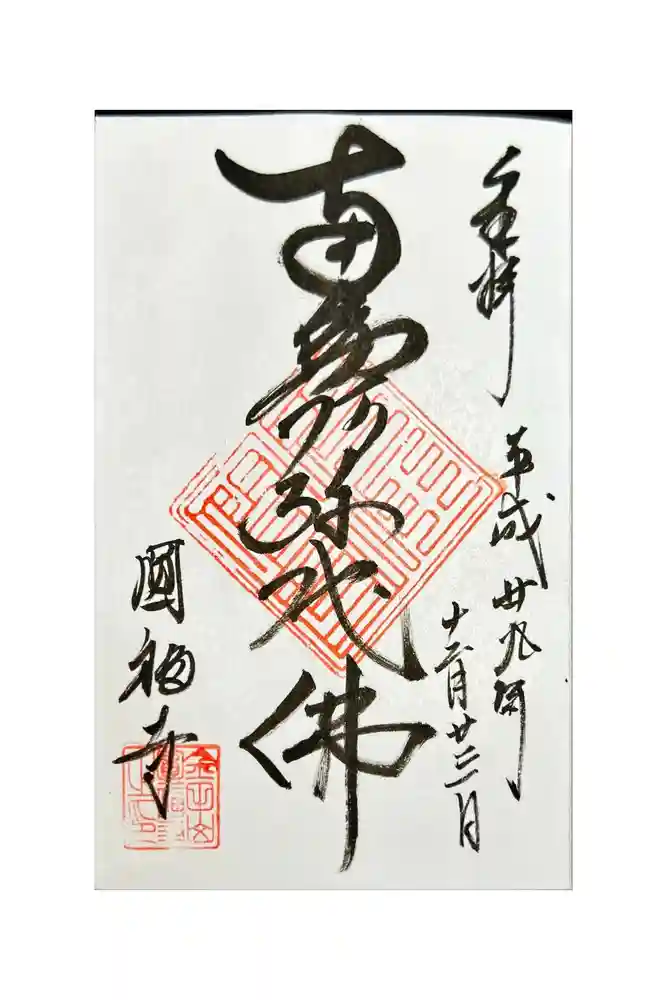 奉拝
平成廿九年
十二月廿三日
南無阿弥陀佛
國福寺